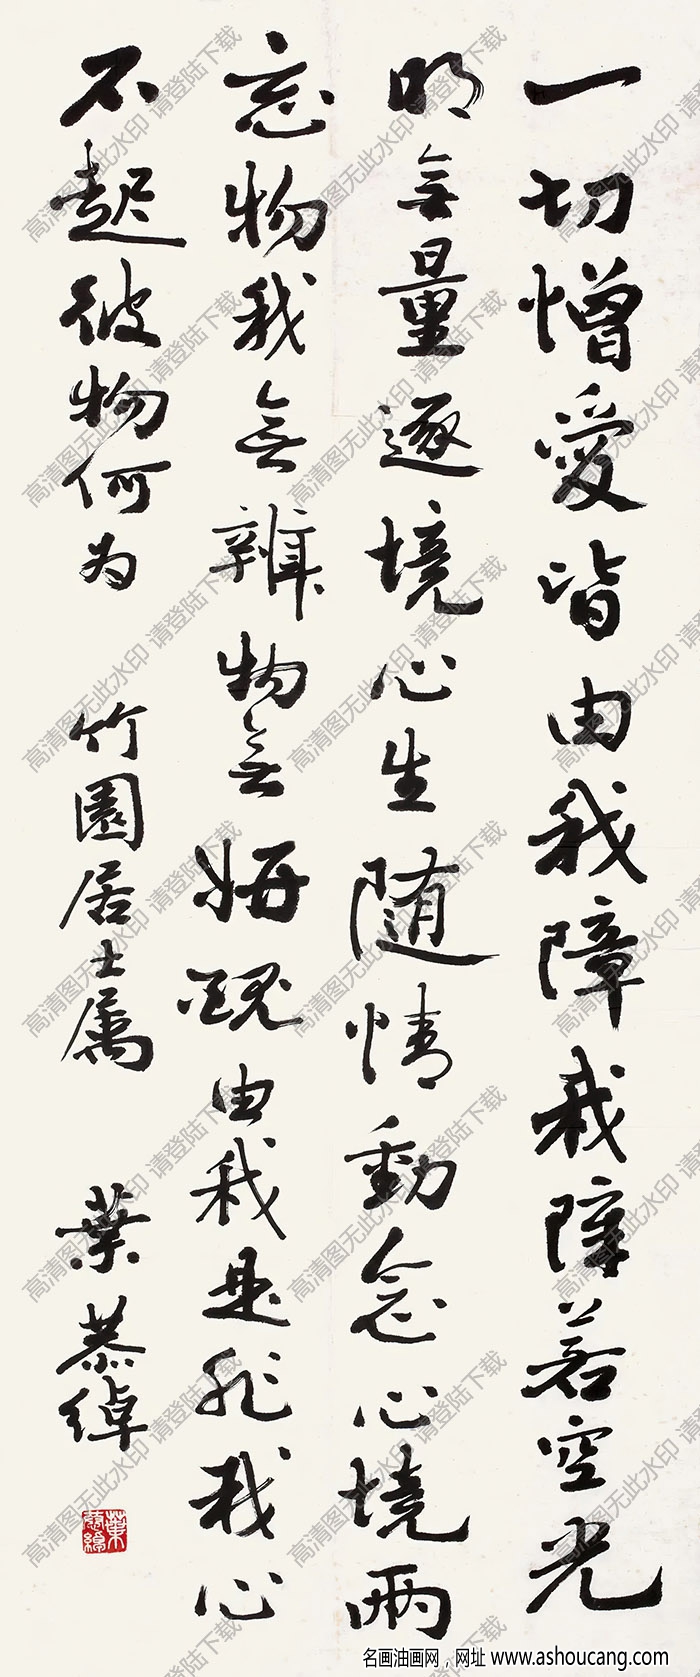 一切憎愛皆由我障我障若空光
明無量逐境心生随情動念心境兩
忘物我無辨物無妍醜由我是非我心
不起彼物何为
竹園居士属
葉恭綽
葉恭綽
高清图无此水印 请登陆下载
名画油画网，网址 www.ashoucang.com